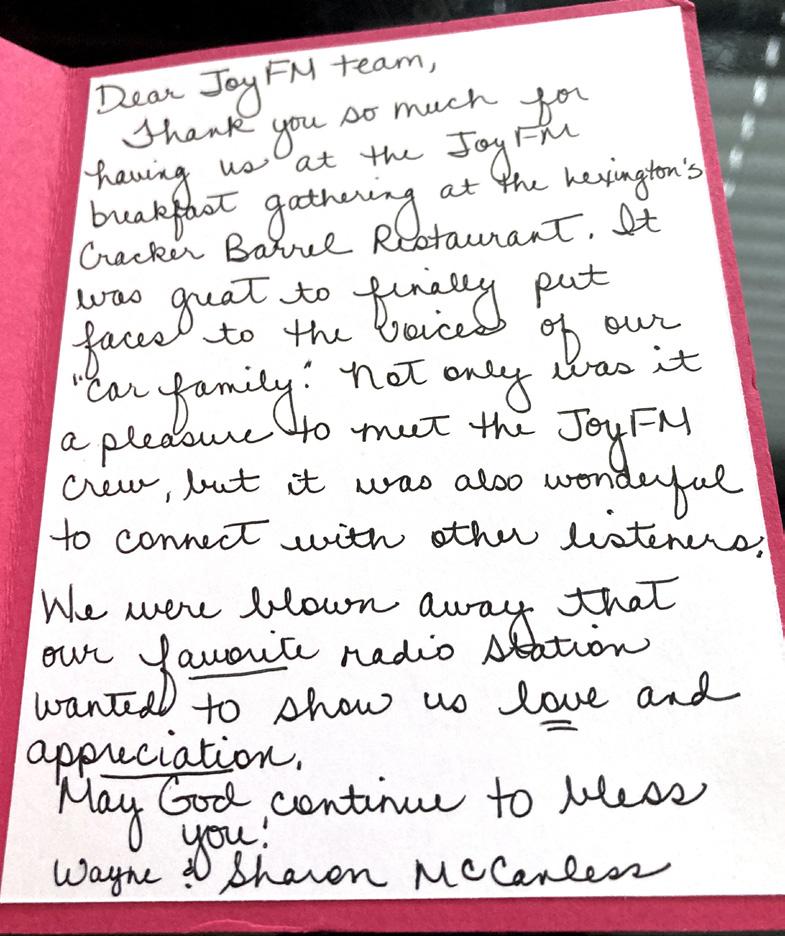 Dear JoyFM team,
Thank you so much for
having us at the JoyFM
breakfast gathering at the Lexington's
Cracker Barrel Restaurant. It
was great to finally put
faces to the voices of our
"car family." Not only was it
a pleasure to meet the JoyFM
crew, but it was also wonderful
to connect with other listeners.
We were blown away that
our favorite radio station
wanted to show us love and
appreciation.
May God continue to bless
you!
Wayne & Sharon McCanless